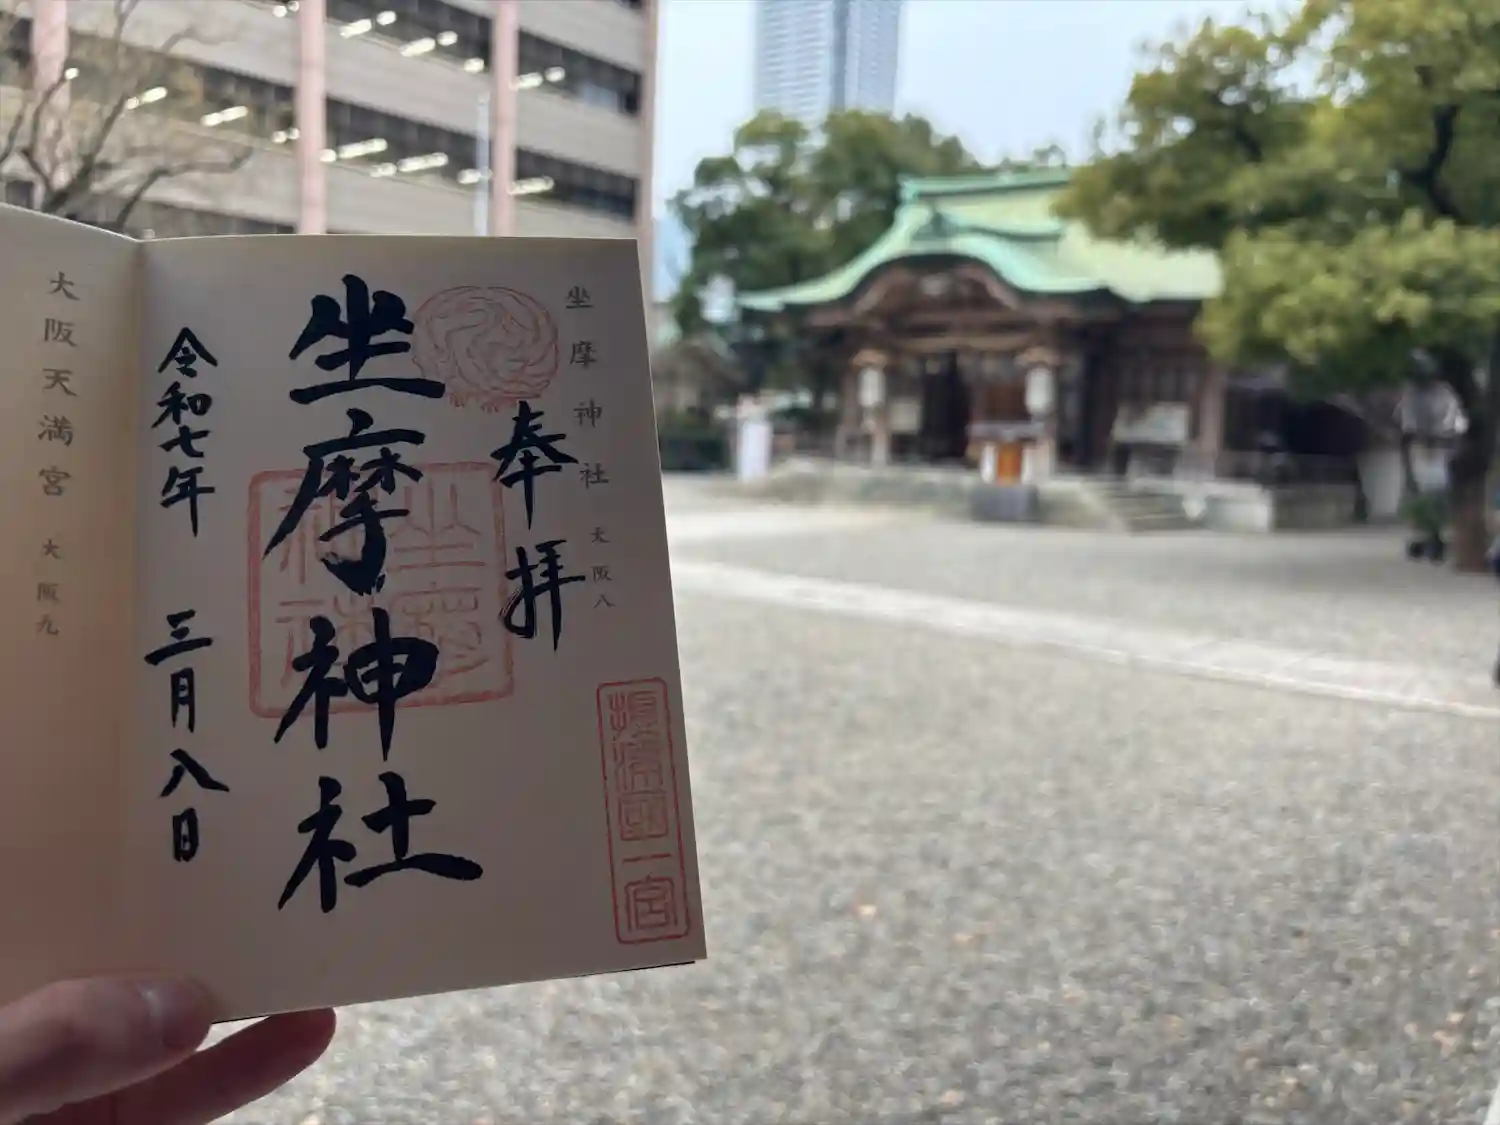 坐摩神社 大阪八
奉拝
坐摩神社
令和七年 三月八日
坐摩神社
摂津国一宮
大阪天満宮 大阪九